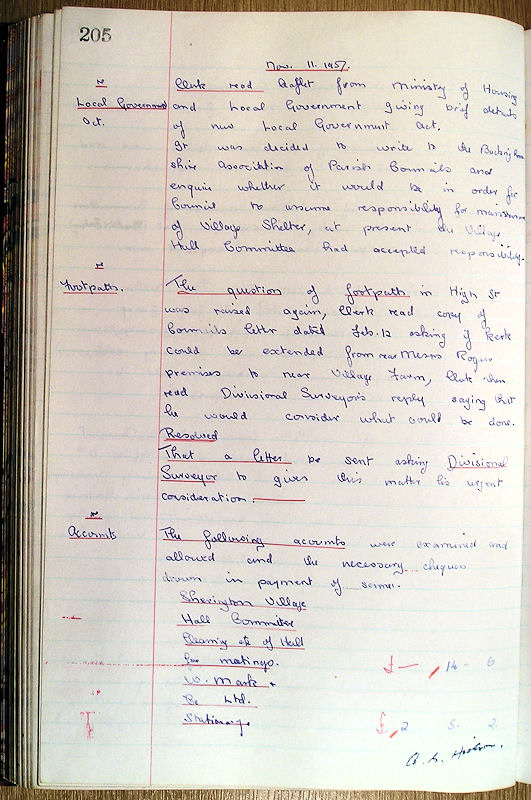 205
Nov. 11. 1957.
Local Government
Act.
Clerk read leaflet from Ministry of Housing
and Local Government giving brief details
of new Local Government Act.
It was decided to write to the Buckingham
shire Association of Parish Councils and
enquire whether it would be in order for
Council to assume responsibility for maintenance
of Village Shelter, at present the Village
Hall Committee had accepted responsibility.
Footpath.
The question of footpath in High St
was raised again, Clerk read copy of
Councils letter dated Feb. 12 asking if kerb
could be extended from near Messrs Roger
premises to near Village Farm, Clerk then
read Divisional Surveyors reply saying that
he would consider what could be done.
Resolved
That a letter be sent asking Divisional
Surveyor to give this matter his urgent
consideration.
Accounts
The following accounts were examined and
allowed and the necessary cheques
drawn in payment of same.
Sherington Village
Hall Committee
Cleaning etc of Hall
for meetings. £ — , 14 - 6
W. Mark &
Co Ltd.
Stationery £, 2 5. 2.